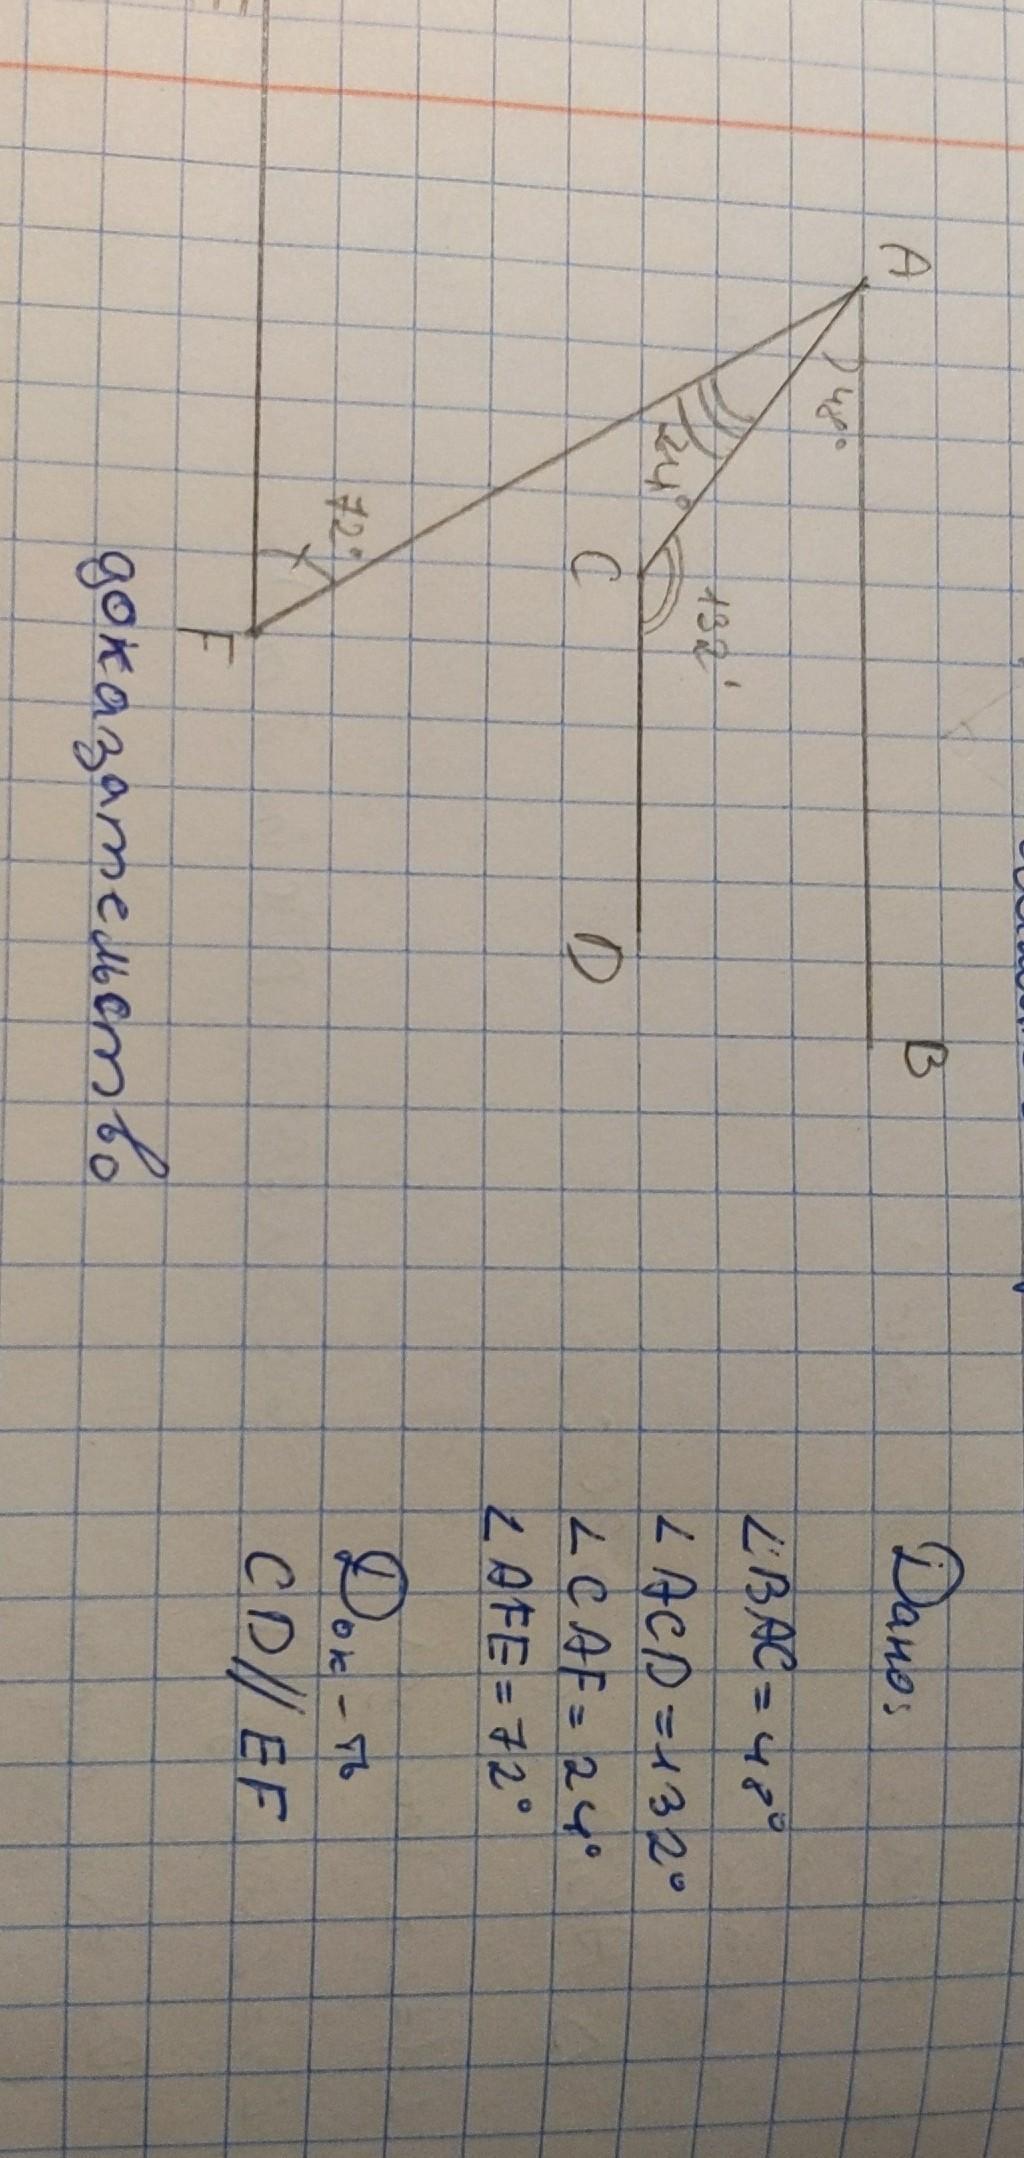 A
B
48°
24°
132'
C
D
72°
F
Дано:
∠BAC = 48°
∠ACD = 132°
∠CAF = 24°
∠AFE = 72°
Док-ть
CD//EF
доказательство